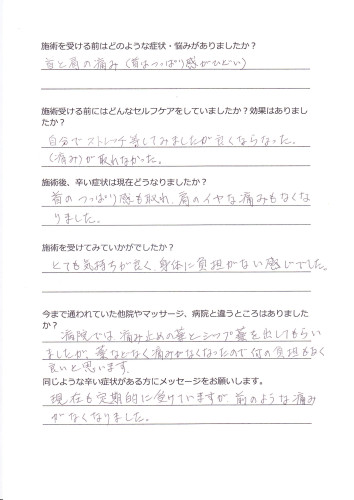 施術を受ける前はどのような症状・悩みがありましたか？
首と肩の痛み（首はつっぱり感がひどい）
施術受ける前にはどんなセルフケアをしていましたか？効果はありまし
たか？
自分でストレッチ等してみましたが良くならなった。
（痛み）が取れなかった。
施術後、辛い症状は現在どうなりましたか？
首のつっぱり感も取れ、肩のイヤな痛みもなくな
りました。
施術を受けてみていかがでしたか？
とても気持ちが良く、身体に負担がない感じでした。
今まで通われていた他院やマッサージ、病院と違うところはありました
か？
病院では痛み止めの薬とシップ薬を出してもらい
ましたが、薬などなく痛みがなくなったので何の負担もなく
良いと思います。
同じような辛い症状がある方にメッセージをお願いします。
現在も定期的に受けていますが、前のような痛み
がなくなりました。